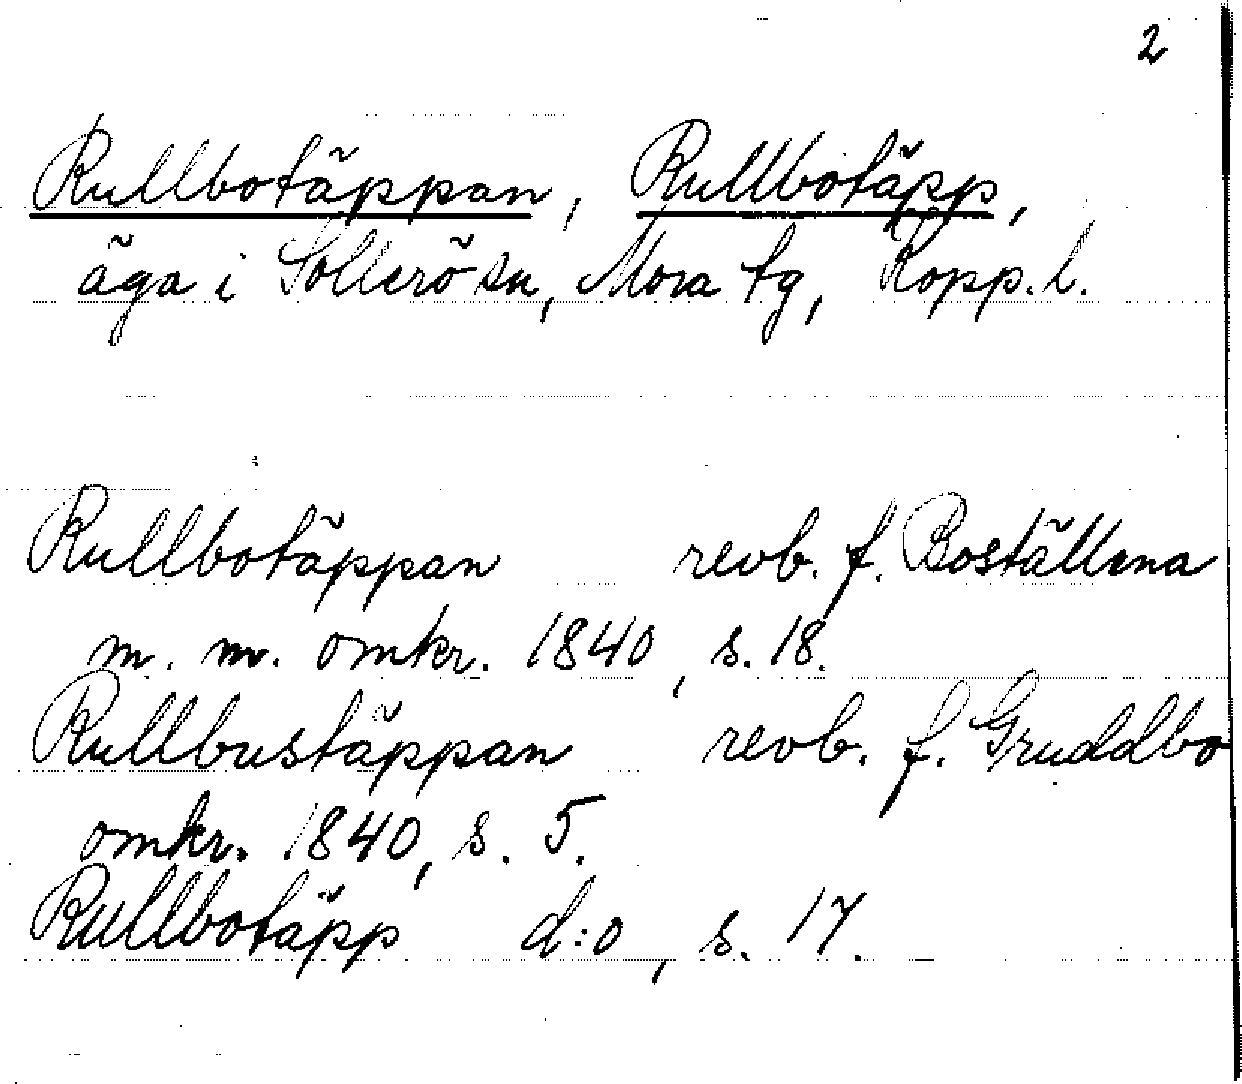 2
Rullbotäppan, Rullbotäpp,
äga i Sollerö sn, Mora tg, Kopp. l.
Rullbotäppan revb. f. Boställena
m. m. omkr. 1840, s. 18.
Rullbustäppan revb. f. Gruddbo
omkr. 1840, s. 5.
Rullbotäpp d:o, s. 17.